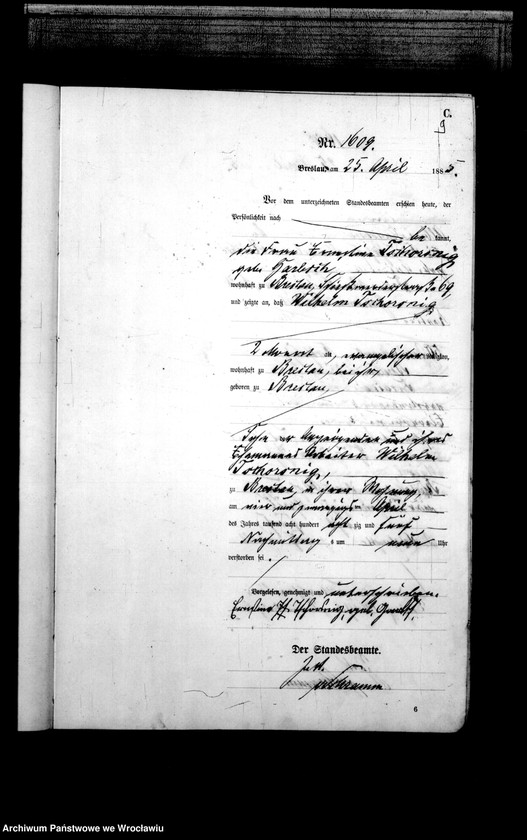 C.
9
Nr. 1609.
Breslau, am 25. April 1885.
Vor dem unterzeichneten Standesbeamten erschien heute, der
Persönlichkeit nach
be kannt,
die Frau Ernestine
geb.
wohnhaft zu Breslau, 69,
und zeigte an, daß Wilhelm
2 Monat alt, evangelischer Religion,
wohnhaft zu Breslau, bei ihr,
geboren zu Breslau,
Sohn der Anzeigenden und ihres
Ehemannes Arbeiter Wilhelm
zu Breslau, in ihrer Wohnung,
am vier und zwanzigsten April
des Jahres tausend acht hundert acht zig und fünf
Nachmittags um neun Uhr
verstorben sei.
Vorgelesen, genehmigt und unterschrieben.
geb.
Der Standesbeamte.
6
Archiwum Państwowe we Wrocławiu